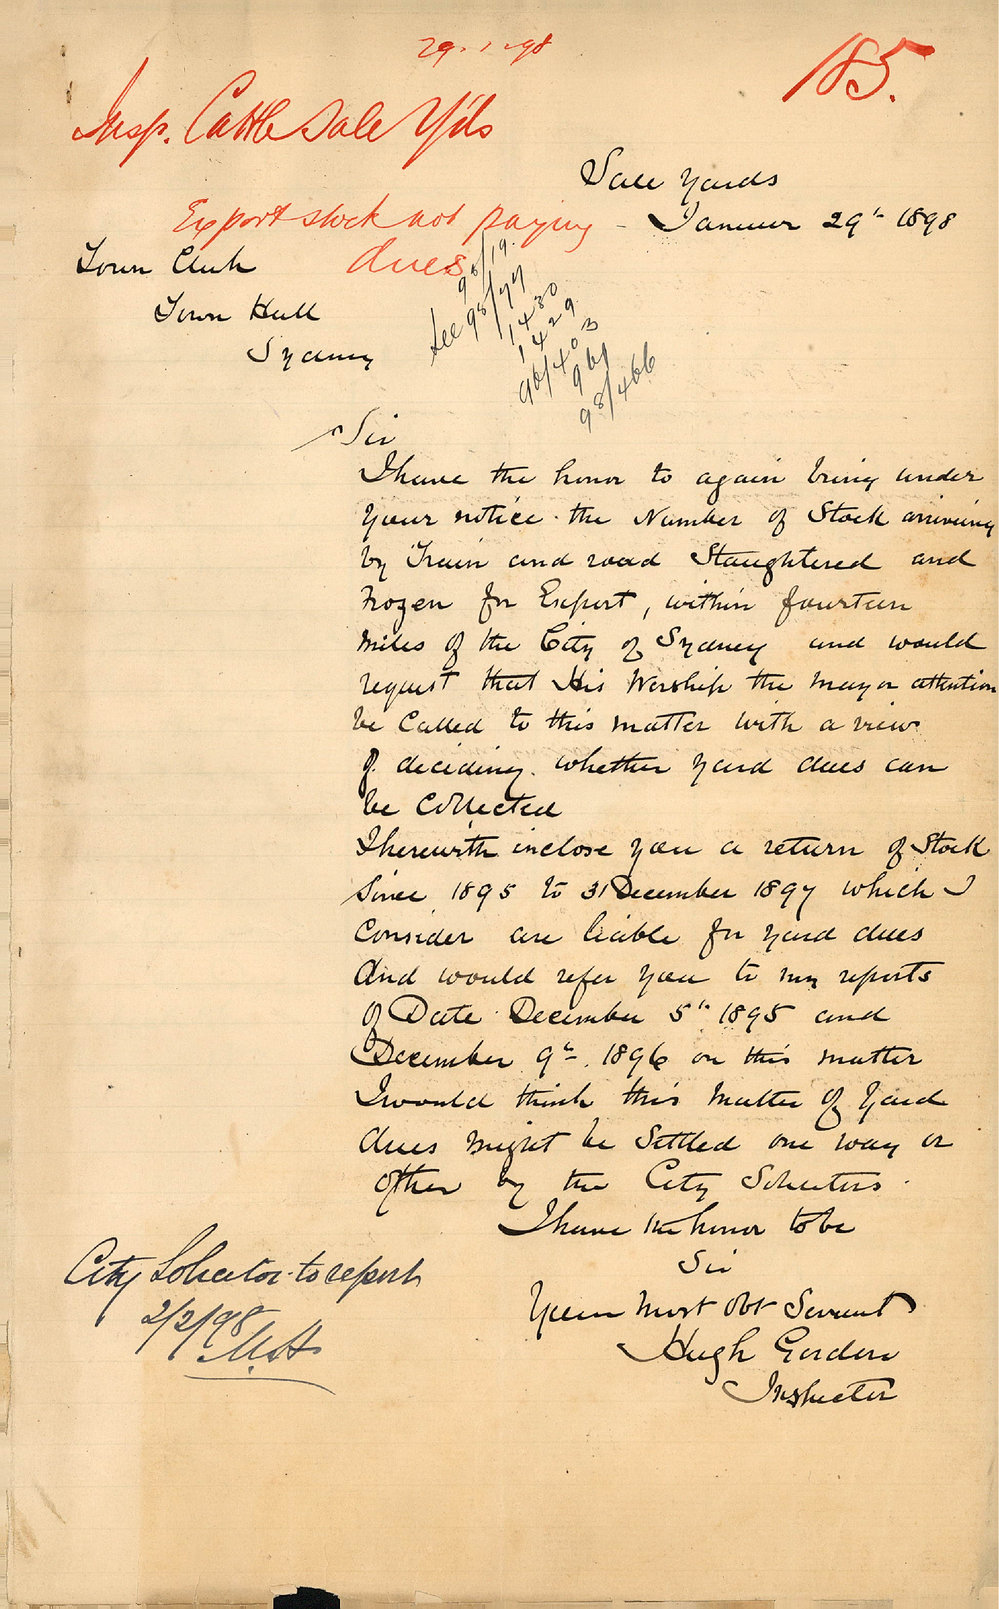 29.1.98
185.
Insp. Cattle Sale Yds
Sale Yards
Export stock not paying
dues
Januar 29th 1898
Town Clerk
Town Hall
Sydney
98/19.
See 98/77
1430
1429
96/403
969
98/466
Sir
I have the honor to again bring under
your notice the Number of Stock arriving
by Train and road Slaughtered and
Frozen for Export, within fourteen
miles of the City of Sydney and would
request that His Worship the Mayor attention
be Called to this matter with a view
of deciding whether yard dues can
be Collected
I herewith inclose you a return of Stock
Since 1895 to 31 December 1897 which I
Consider are liable for yard dues
And would refer you to my reports
of Date December 5th 1895 and
December 9th. 1896 on this matter
I would think this Matter of Yard
dues might be Settled one way or
other by the City Solicitors.
I have the honor to be
Sir
Your Most Obt Servant
Hugh Gordon
Inspector
City Solicitor to report
2/2/98